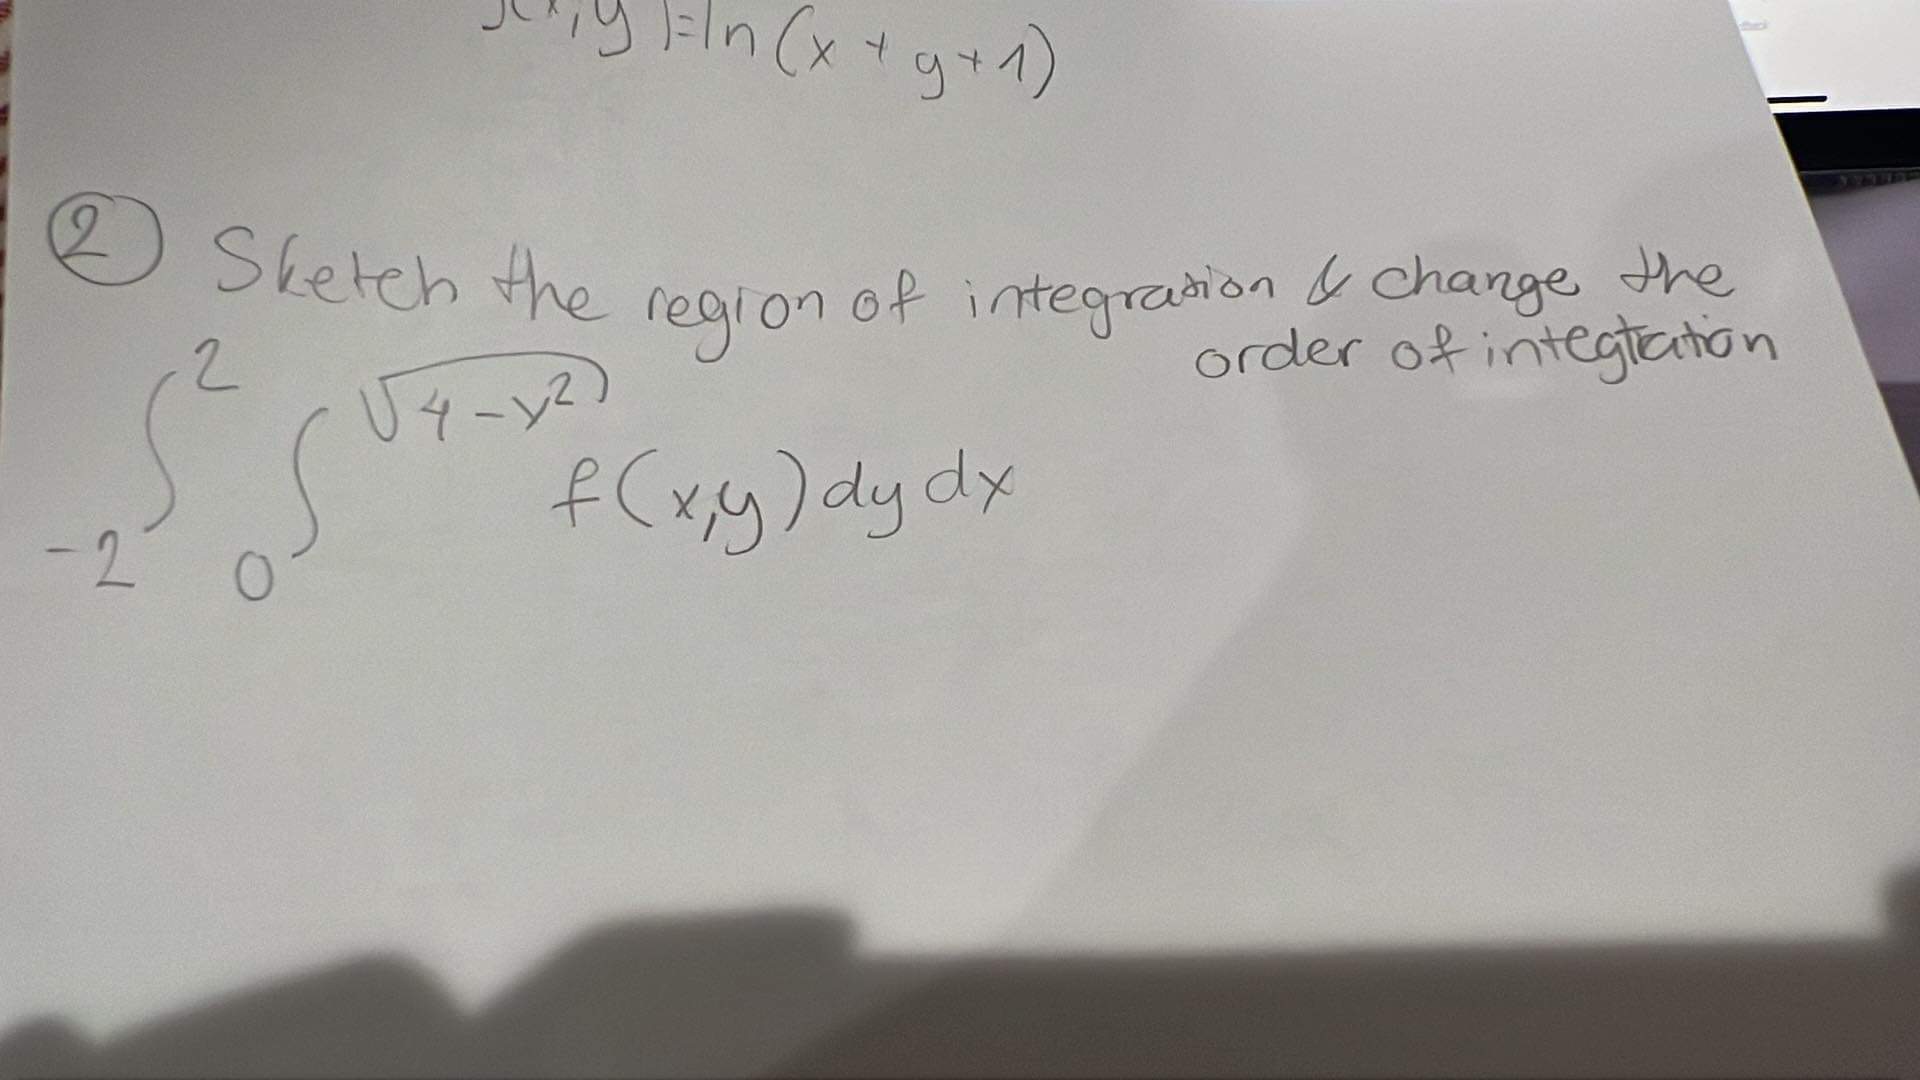 f(x,y)=ln(x+y+1)
② Sketch the region of integration & change the
order of integration
∫_{-2}^{2} ∫_{0}^{√(4-y²)} f(x,y) dy dx